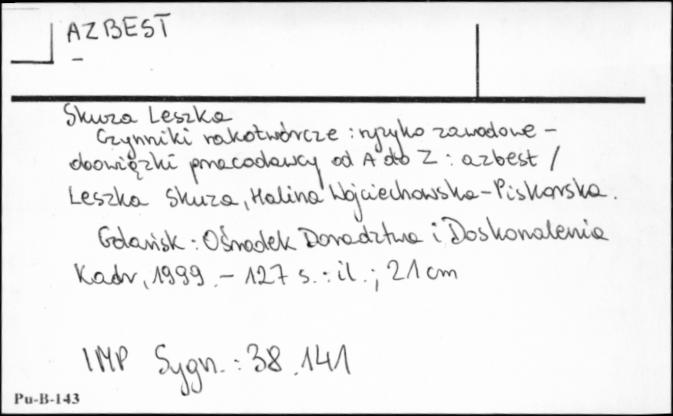 AZBEST
–
Skuza Leszka
Czynniki rakotwórcze : ryzyko zawodowe –
obowiązki pracodawcy od A do Z : azbest /
Leszka Skuza, Halina Wojciechowska-Piskorska.
Gdańsk : Ośrodek Doradztwa i Doskonalenia
Kadr, 1999. – 127 s. : il. ; 21 cm
IMP Sygn. : 38.141
Pu-B-143